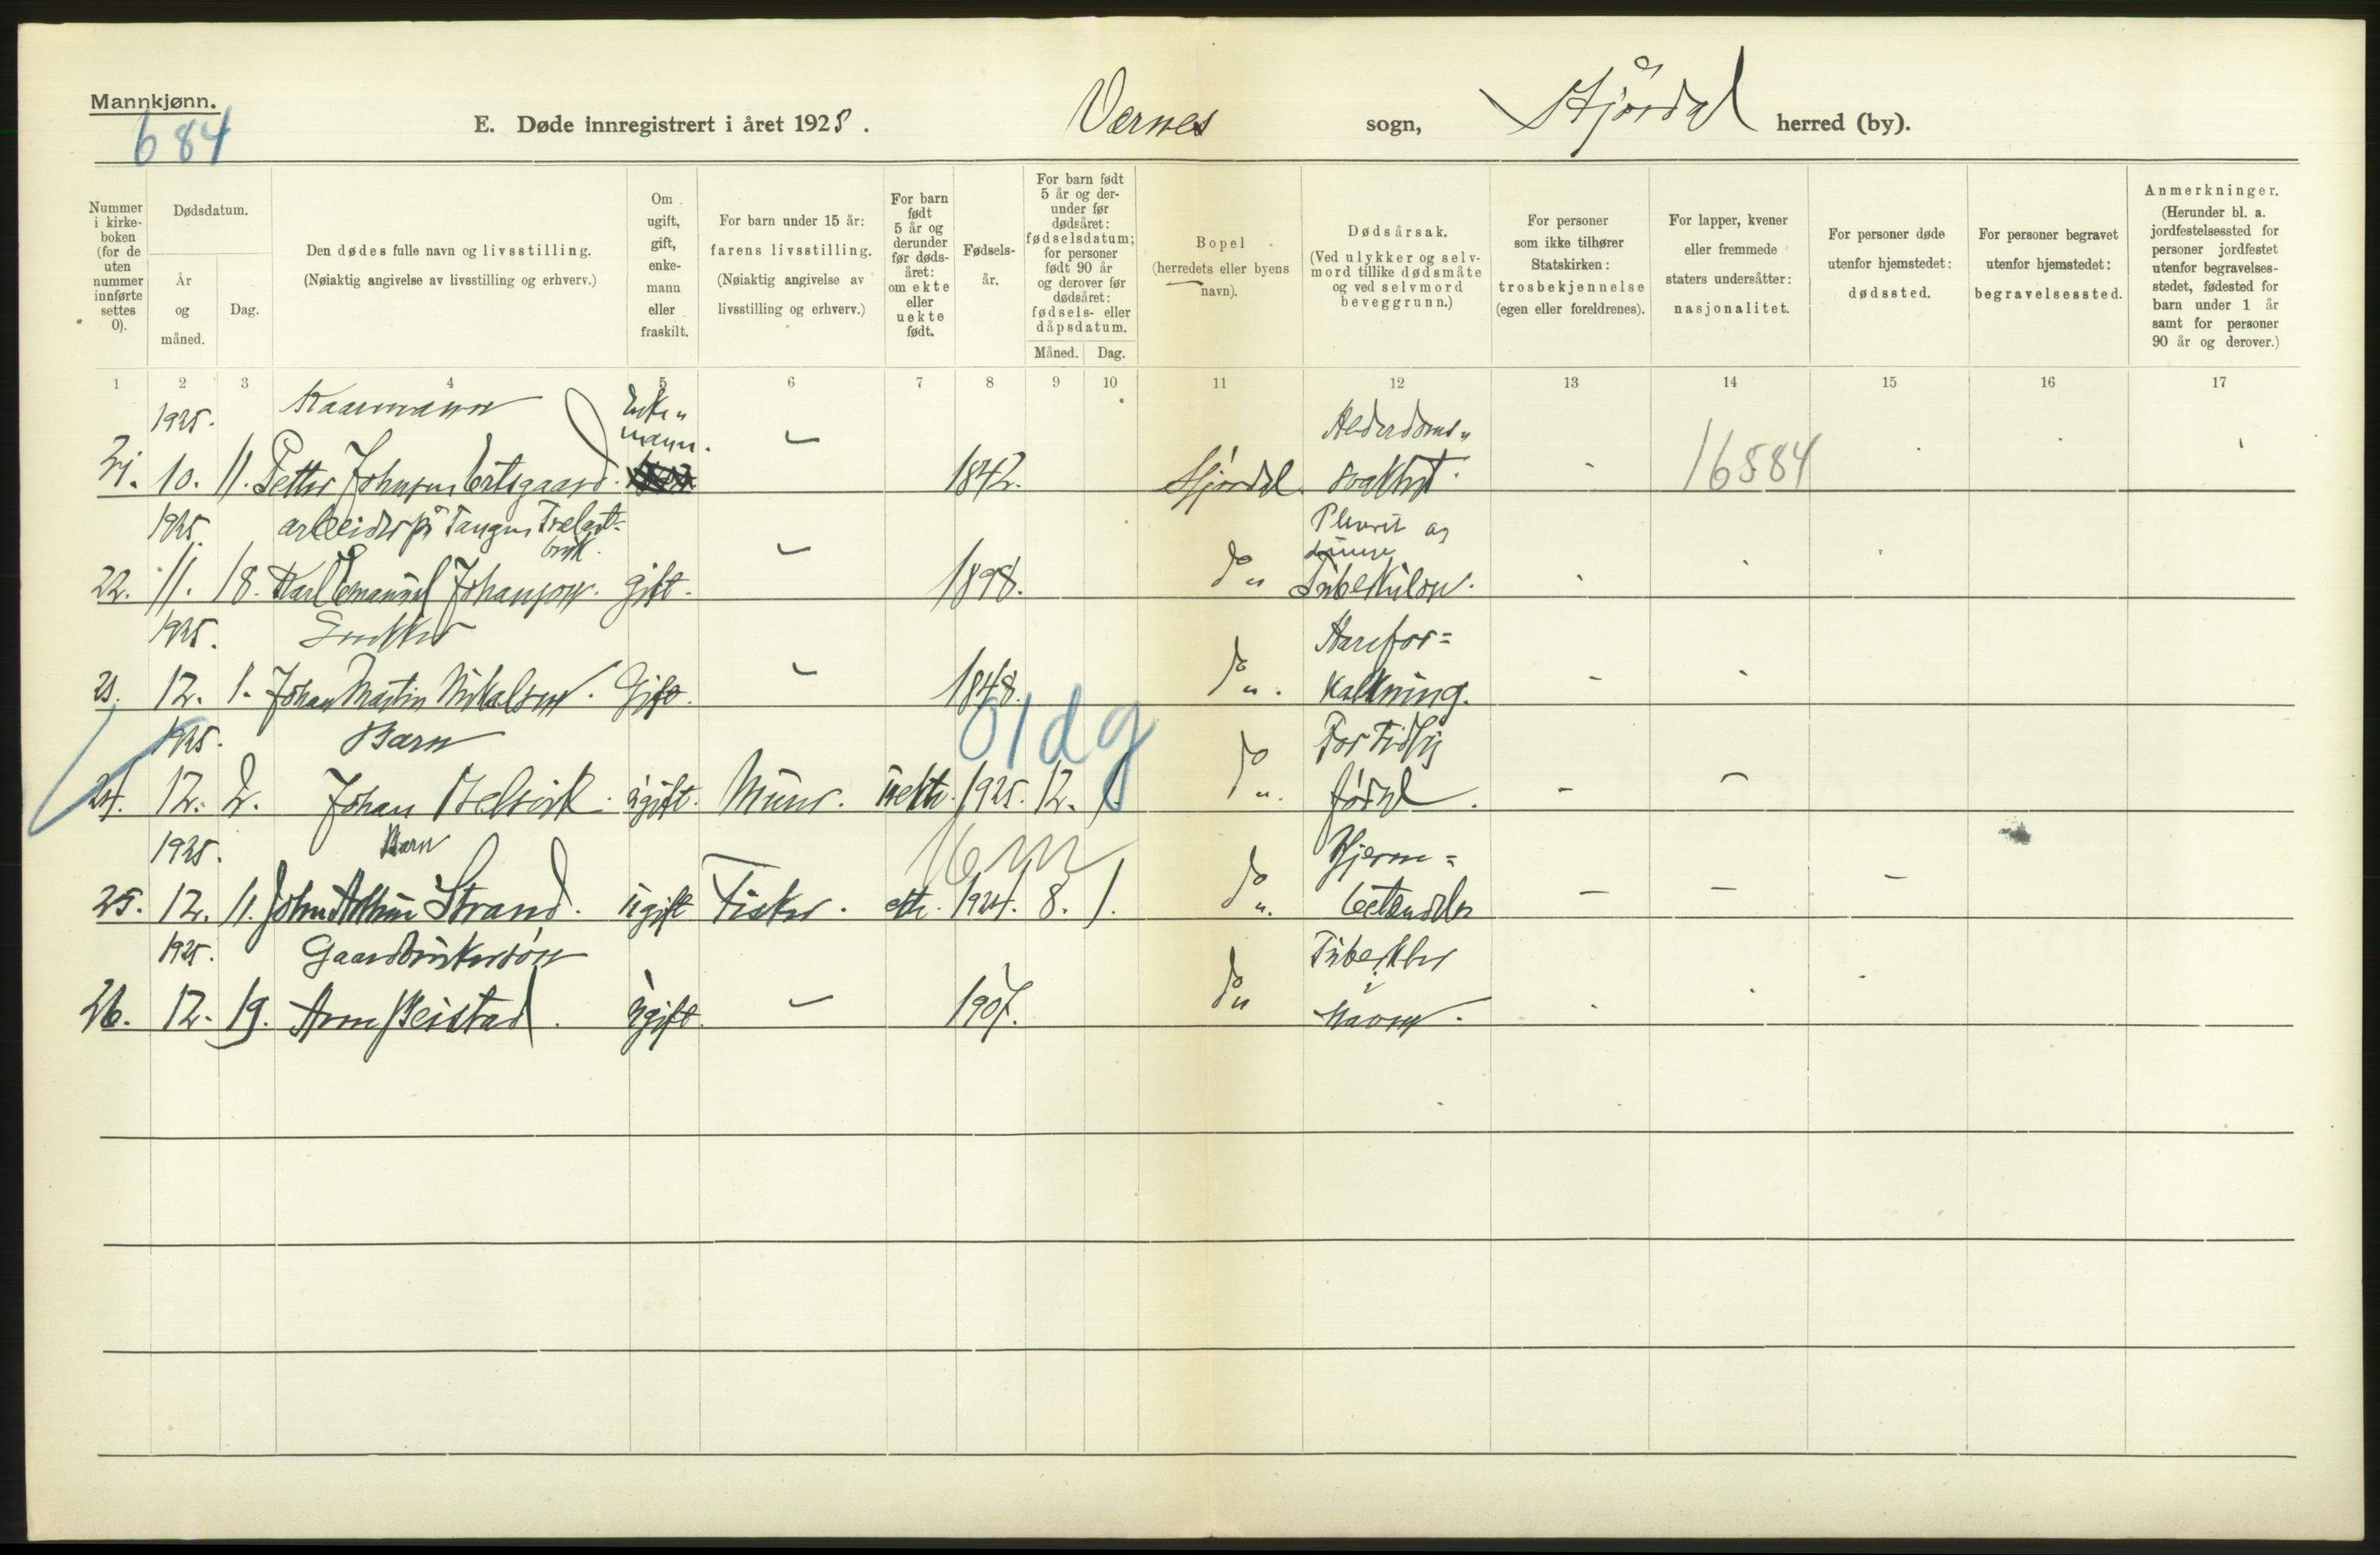 Mannkjønn.
684
E. Døde innregistrert i året 1925.
Værnes sogn, Stjørdal herred (by).
Nummer i kirke-boken (for de uten nummer innførte settes 0).
Dødsdatum.
År og måned.
Dag.
Den dødes fulle navn og livsstilling.
(Nøiaktig angivelse av livsstilling og erhverv.)
Om ugift, gift, enke-mann eller fraskilt.
For barn under 15 år: farens livsstilling.
(Nøiaktig angivelse av livsstilling og erhverv.)
For barn født 5 år og derunder før døds-året: om ekte eller uekte født.
Fødsels-år.
For barn født 5 år og der-under før dødsåret: fødselsdatum; for personer født 90 år og derover før dødsåret: fødsels- eller dåpsdatum.
Måned.
Dag.
Bopel
(herredets eller byens navn).
Dødsårsak.
(Ved ulykker og selv-mord tillike dødsmåte og ved selvmord beveggrunn.)
For personer som ikke tilhører Statskirken: trosbekjennelse (egen eller foreldrenes).
For lapper, kvener eller fremmede staters undersåtter: nasjonalitet.
For personer døde utenfor hjemstedet: dødssted.
For personer begravet utenfor hjemstedet: begravelsessted.
Anmerkninger.
(Herunder bl. a. jordfestelsessted for personer jordfestet utenfor begravelses-stedet, fødested for barn under 1 år samt for personer 90 år og derover.)
1 2 3 4 5 6 7 8 9 10 11 12 13 14 15 16 17
1925. Kaarmann Enke„ Alderdoms„
21. 10. 11. Petter Johnsen mann. – 1842. Stjørdal. svakhet. 16584
1925. arbeider på Tangen Trelast-
bruk. Pleurit og
22. 11. 18. Karl Emanuel Johansen. gift. – 1898. do „ Tuberkulose.
1925. Snekker Aarefor=
23. 12. 1. Johan Martin Nikalsen. Gift. – 1848. do „. kalkning.
1925. Barn 01dg For tidlig
24. 12. 2. Johan Belsvik. ugift. Murer. uekte. 1925. 12. 1. do „. født.
1925. Barn 16m Hjerne=
25. 12. 11. John Arthur Strand. ugift Fisker. ekte. 1924. 8. 1. do „. betendelse
1925. Gaardbrukersøn Tuberkler
26. 12. 19. Arne Beistad. ugift. – 1907. do „